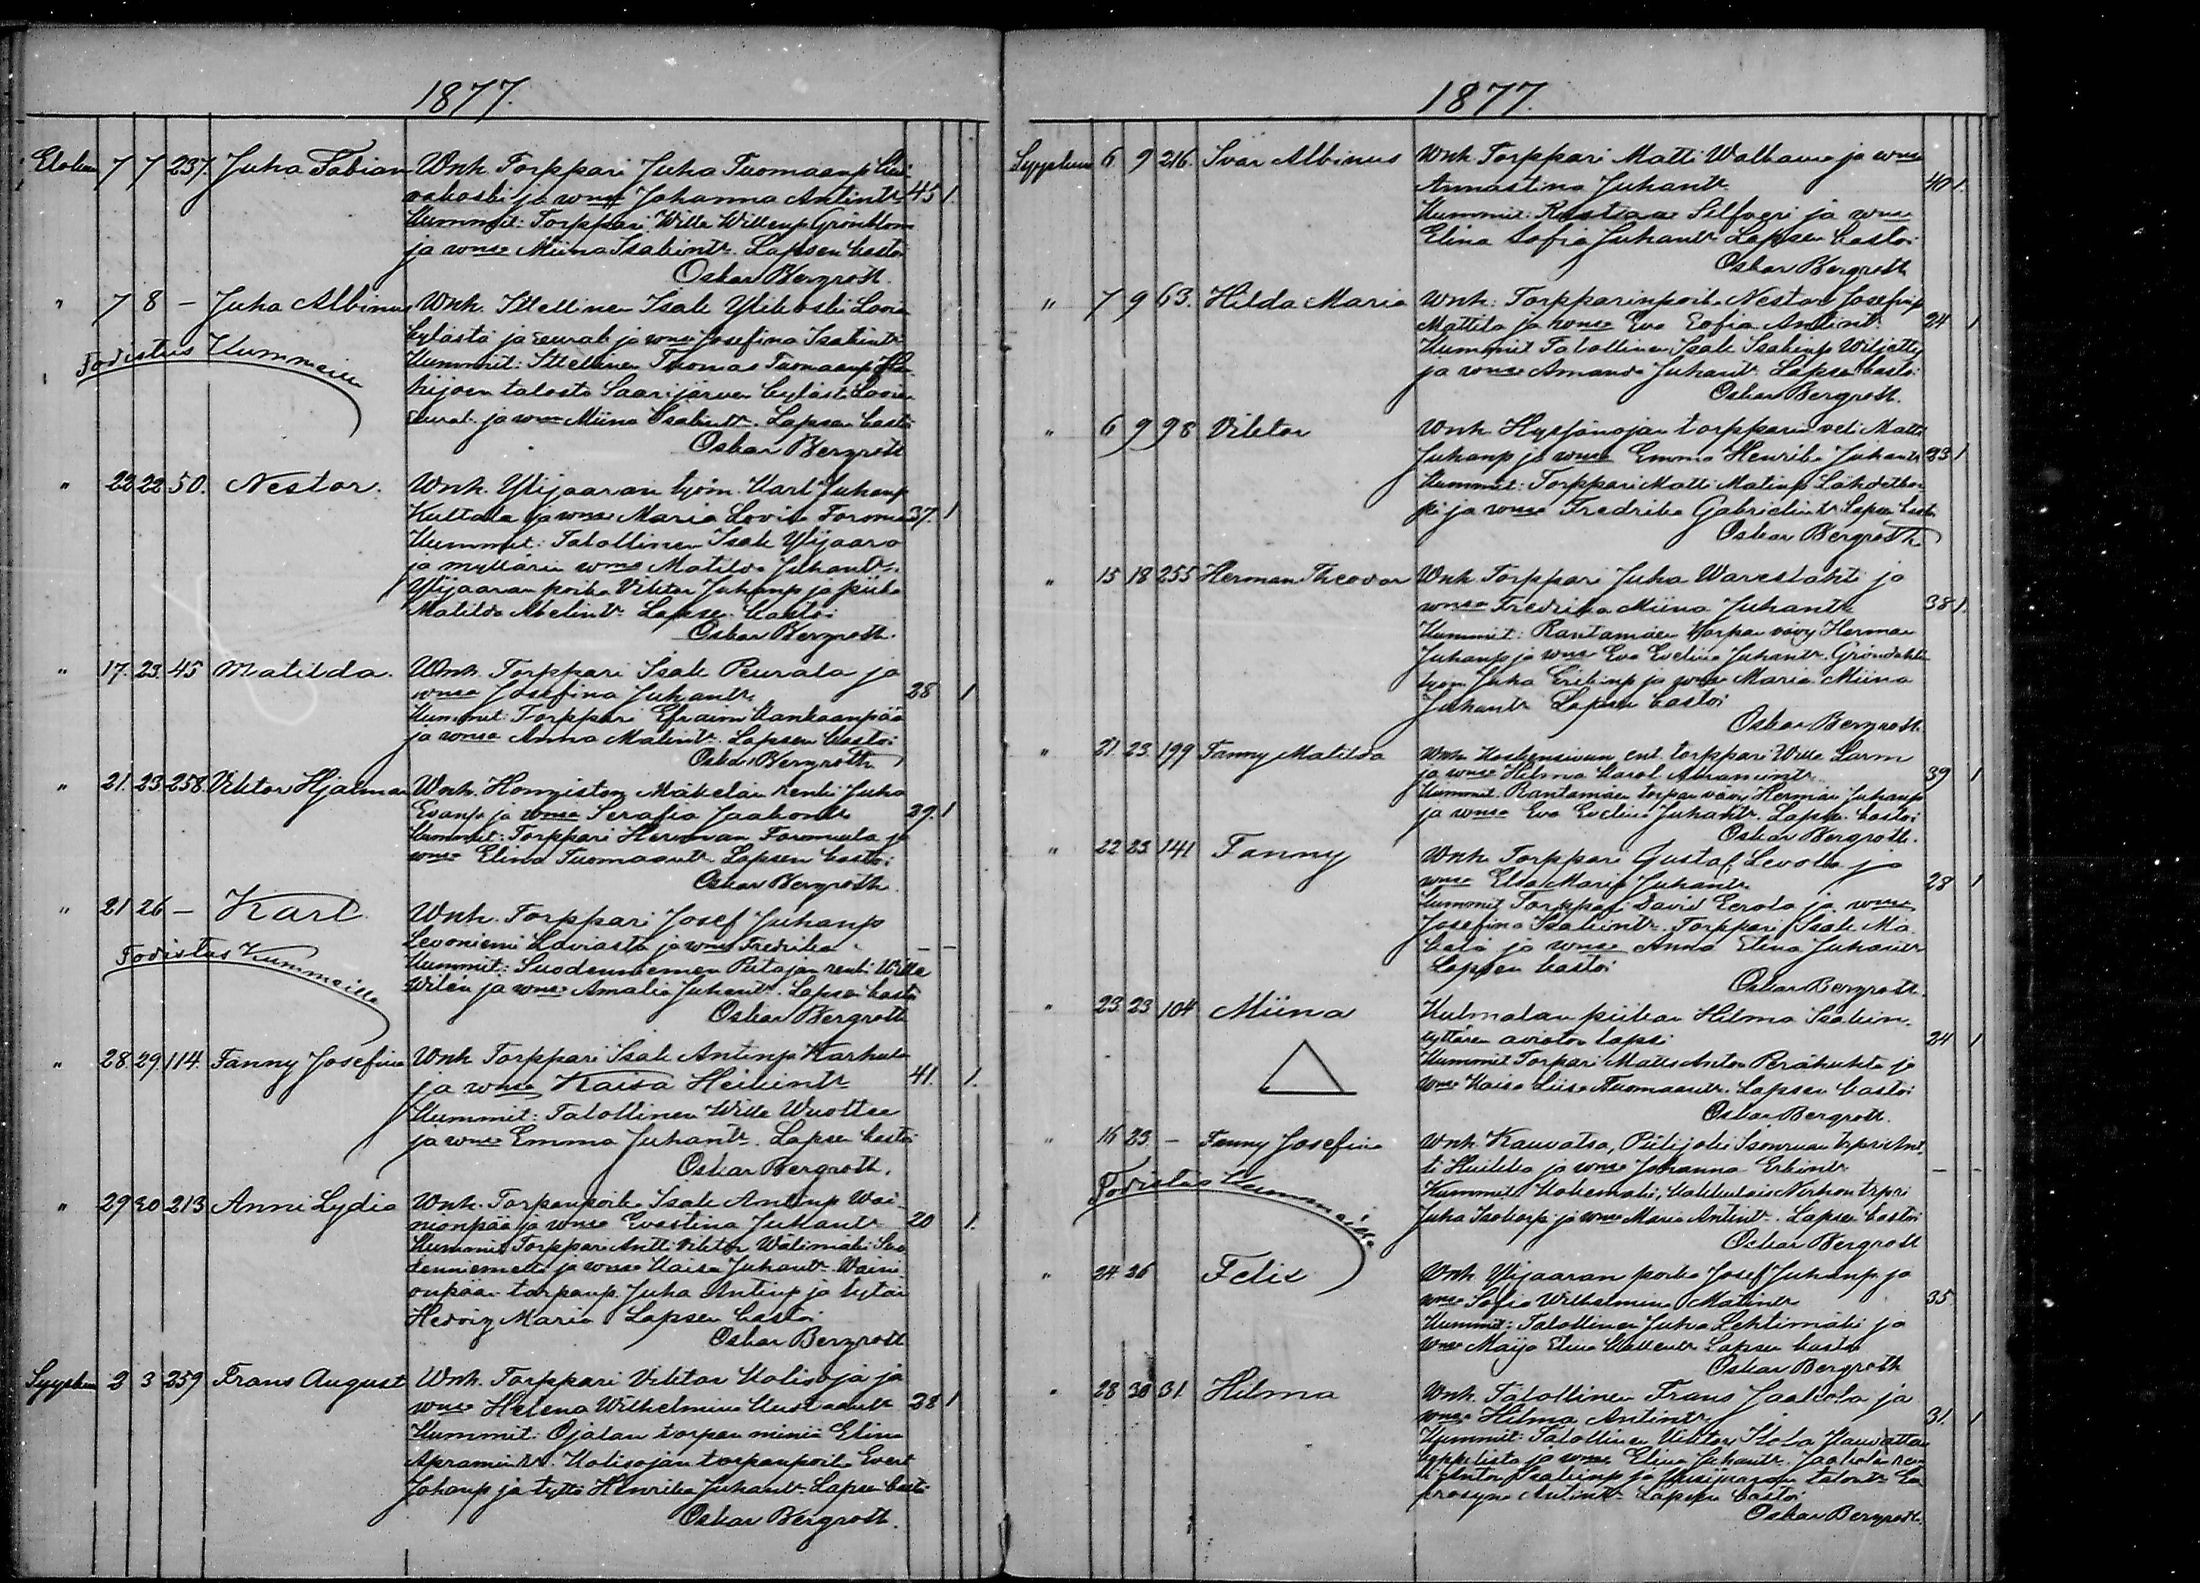 1877.
Elokuu 7 7 237. Juha Fabian Wnh. Torppari Juha Tuomaanp
vakoski ja wmsa Johanna Antintr. 45 1.
Kummit: Torppari Wille Willenp Grönblom
ja wmsa Miina Isakintr. Lapsen kastoi
Oskar Bergroth.
" 7 8 – Juha Albinus Wnh. Itsellinen Isak Ylikoski Lavia
kylästä ja seurak. ja wmsa Josefina Isakintr
Todistus Kummeille
Kummit: Itsellinen Thomas Tuomaanp
kijoen talosta Saarijärven kylästä Lavian
seurak. ja wmsa Miina Isakintr. Lapsen kastoi
Oskar Bergroth
" 22 22 50. Nestor. Wnh. Ylijaaran työm. Karl Juhanp
Kultala ja wmsa Maria Lovisa 37. 1
Kummit: Talollinen Isak Ylijaara
ja myllärin wmsa Matilda Juhantr.
Ylijaaran poika Viktor Juhanp ja piika
Matilda Abelintr. Lapsen kastoi
Oskar Bergroth.
" 17. 23. 45 Matilda. Wnh. Torppari Isak Peurala ja
wmsa Josefina Juhantr. 28 1
Kummit: Torppari Efraim Kankaanpää
ja wmsa Anna Matintr. Lapsen kastoi
Oskar Bergroth
" 21. 23. 258. Viktor Hjalmar Wnh. Hongiston Mäkelän renki Juha
Evanp ja wmsa Serafia Jaakontr 29. 1
Kummit: Torppari Herman ja
wmsa Elina Tuomaantr. Lapsen kastoi
Oskar Bergroth
" 21 26 – Karl. Wnh. Torppari Josef Juhanp
Levoniemi Laviasta ja wmsa Fredrika – –
Todistus Kummeille
Kummit: Suodenniemen renki Wille
Wilén ja wmsa Amalia Juhantr. Lapsen kastoi
Oskar Bergroth
" 28. 29. 114. Fanny Josefina Wnh Torppari Isak Antinp Karhula
ja wmsa Kaisa Heikintr 41. 1.
Kummit: Talollinen Wille
ja wmsa Emma Juhantr. Lapsen kastoi
Oskar Bergroth.
" 29 30 213 Anni Lydia Wnh. Torpanpoika Isak Antinp Wäi-
nionpää ja wmsa Evastina Juhantr 20 1.
Kummit Torppari Antti Viktor Wälimäki Suo
denniemeltä ja wmsa Kaisa Juhantr. Wäini
onpään torpanp. Juha Antinp ja tytär
Hedvig Maria Lapsen kastoi
Oskar Bergroth
Syyskuu 2 3 259 Frans August Wnh. Torppari Viktor Kolisoja ja
wmsa Helena Wilhelmina Kustaantr 28 1
Kummit: Ojalan torpan miniä Elina
Apramintr. Kolisojan torpanpoika Evert
Johanp ja tyttö Henrika Juhantr. Lapsen kastoi
Oskar Bergroth.
1877.
Syyskuu 6 9 216. Ivar Albinus Wnh Torppari Matti Walkama ja wmsa
Annastina Juhantr. 40 1.
Kummit: Kustaa Silfveri ja wmsa
Elina Sofia Juhantr. Lapsen kastoi
Oskar Bergroth
" 7 9 63. Hilda Maria Wnh: Torpparinpoika Nestor Josefinp
Mattila ja wmsa Eva Sofia Antintr. 24 1
Kummit Talollinen Isak Isakinp
ja wmsa Amanda Juhantr. Lapsen kastoi
Oskar Bergroth.
" 6 9 98 Viktor Wnh torpparin veli Matti
Juhanp ja wmsa Emma Henrika Juhantr 23 1
Kummit: Torppari Matti Matinp
ja wmsa Fredrika Gabrielintr. Lapsen kastoi
Oskar Bergroth
" 15 18 255 Herman Theodor Wnh Torppari Juha Wareslahti ja
wmsa Fredrika Miina Juhantr 38 1.
Kummit: Rantamäen torpan vävy Herman
Juhanp ja wmsa Eva Evelina Juhantr. Gröndahlin
työm Juha Erikinp ja wmsa Maria Miina
Juhantr. Lapsen kastoi
Oskar Bergroth
" 21. 23. 199 Fanny Matilda Wnh ent. torppari Wille Larm
ja wmsa Hilma Karol. Abramintr. 39 1
Kummit. Rantamäen torpan vävy Herman Juhanp
ja wmsa Eva Evelina Juhantr. Lapsen kastoi
Oskar Bergroth.
" 22 23 141 Fanny Wnh Torppari Gustaf Levola ja
wmsa Elsa Maria Juhantr 28 1
Kummit Torppari David Eerola ja wmsa
Josefina Isakintr. Torppari Isak Mä
kelä ja wmsa Anna Elina Juhantr
Lapsen kastoi
Oskar Bergroth.
" 23 23 104 Miina Kulmalan piikan Hilma Isakin
tyttären aviotoin lapsi 24 1
Kummit Torppari Matts Anton ja
wmsa Kaisa Liisa Tuomaantr. Lapsen kastoi
Oskar Bergroth.
" 16 23 – Fanny Josefina Wnh. Kauvatsa, Piilijoki
ja wmsa Johanna Erkintr – –
Todistus Kummeille
Kummit Kokemäki,
Juha ja wmsa Maria Antintr. Lapsen kastoi
Oskar Bergroth
" 24. 26 Felix Wnh Ylijaaran poika Josef Juhanp ja
wmsa Sofia Wilhelmina Matintr 35.
Kummit: Talollinen Juha Lehtimäki ja
wmsa Maija Elina Lapsen kastoi
Oskar Bergroth
" 28 30 31. Hilma Wnh. Talollinen Frans Jaakola ja
wmsa Hilma Antintr. 31. 1
Kummit: Talollinen Viktor Isola
ja wmsa Elina Juhantr. Jaakolan ren
ki Anton Isakinp ja talontr
Antintr. Lapsen kastoi
Oskar Bergroth.